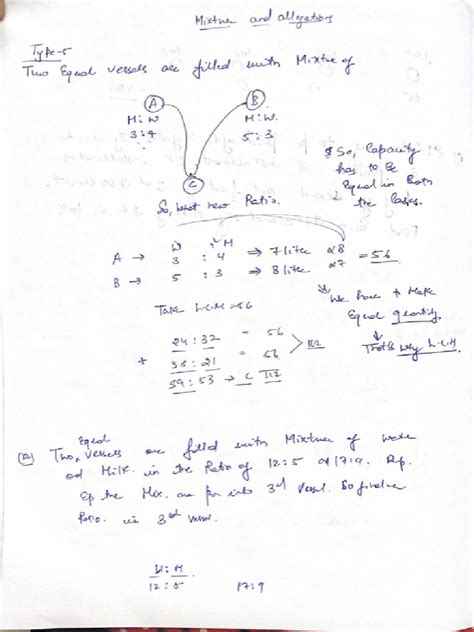 Mixture and allegations
Type-5
Two Equal vessels are filled with Mixture of
A B
M:W M:W.
3:4 5:3
So, Capacity
has to Be
Equal in Both
the Cases.
C
So, what new Ratio.
W : M
A → 3 : 4 ⇒ 7 litre x8 = 56
B → 5 : 3 ⇒ 8 litre x7
Take L.C.M = 56
We have to Make
Equal quantity
That's why L.C.M
24:32 = 56
+ 35:21 = 56 > 112
59:53 → C 112
Equal
Two, vessels are filled with Mixture of water
and Milk. in the Ratio of 12:5 17:9.
the Mix. are into 3rd vessel. So
Ratio. in 3rd vessel.
W:M
12:5 17:9